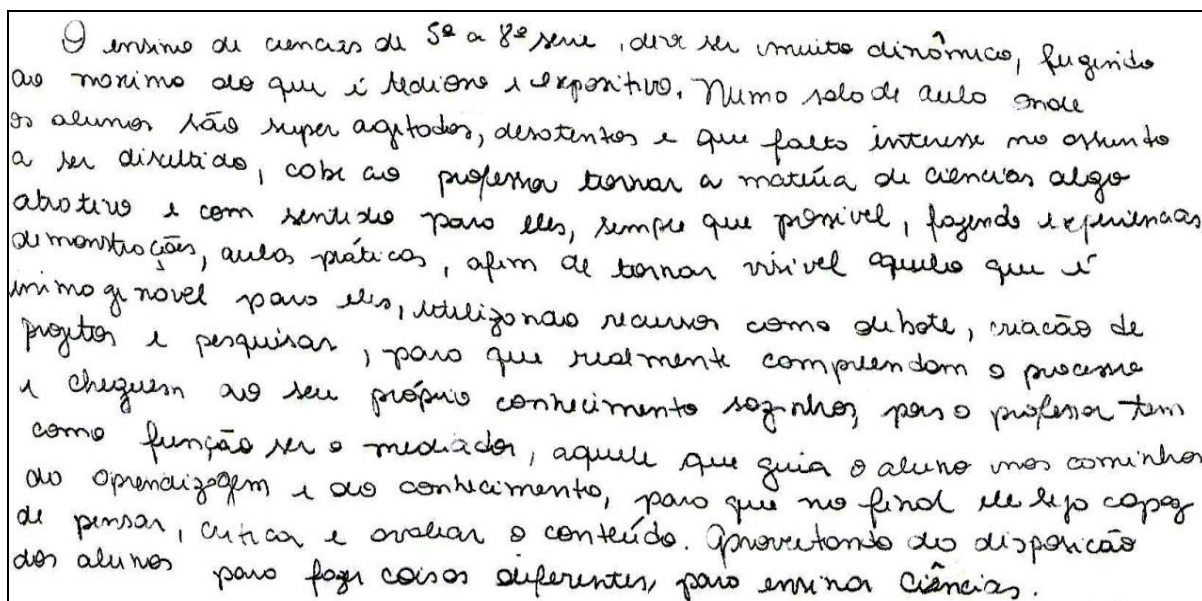 O ensino de ciencias de 5ª a 8ª serie, deve ser muito dinâmico, fugindo
ao maximo do que é tedioso e expositivo. Numa sala de aula onde
os alunos são super agitados, desatentos e que falta interesse no assunto
a ser discutido, cabe ao professor tornar a matéria de ciencias algo
atrativo e com sentido para eles, sempre que possivel, fazendo experiencias
demonstrações, aulas práticas, afim de tornar visivel aquilo que é
inimaginável para eles, utilizando recursos como debate, criacão de
projetos e pesquisas, para que realmente compreendam o processo
e cheguem ao seu próprio conhecimento sozinhos, pois o professor tem
como função ser o mediador, aquele que guia o aluno nos caminhos
da aprendizagem e do conhecimento, para que no final ele seja capaz
de pensar, criticar e avaliar o conteúdo. Aproveitando da disposicão
dos alunos para fazer coisas diferentes, para ensinar Ciências.